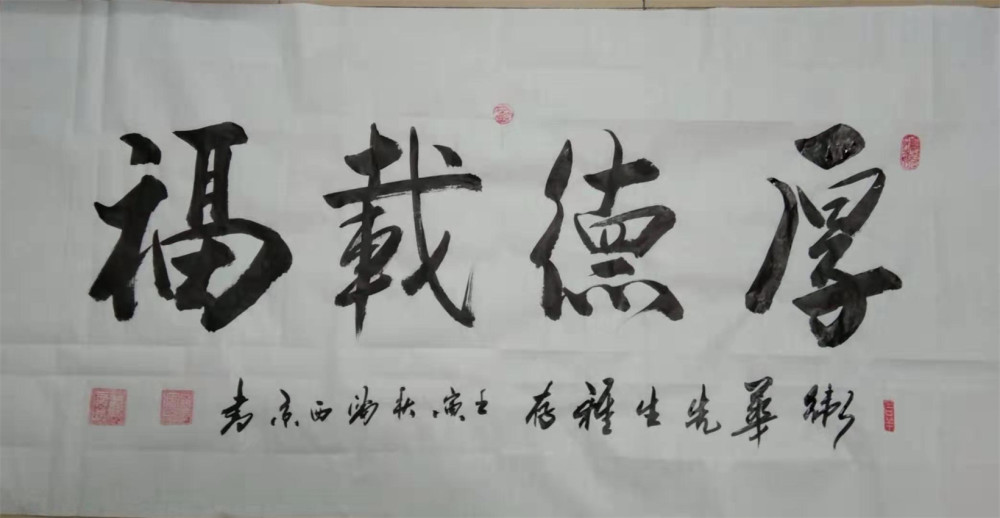 厚德載福
衛華先生雅存 壬寅秋 西京書